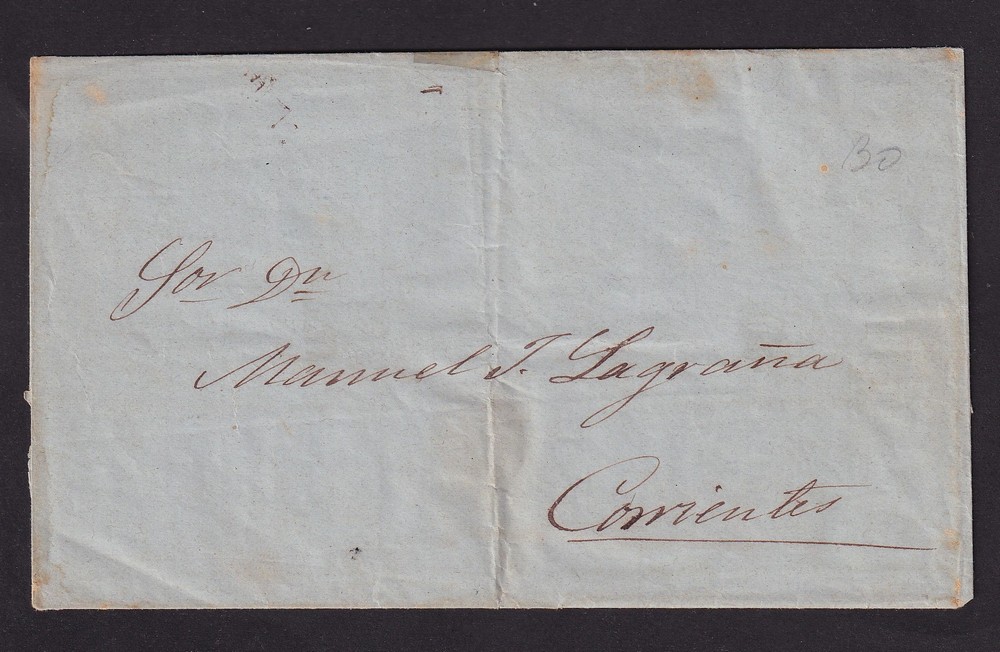 BO
Sor Dn
Manuel J. Lagraña
Corrientes